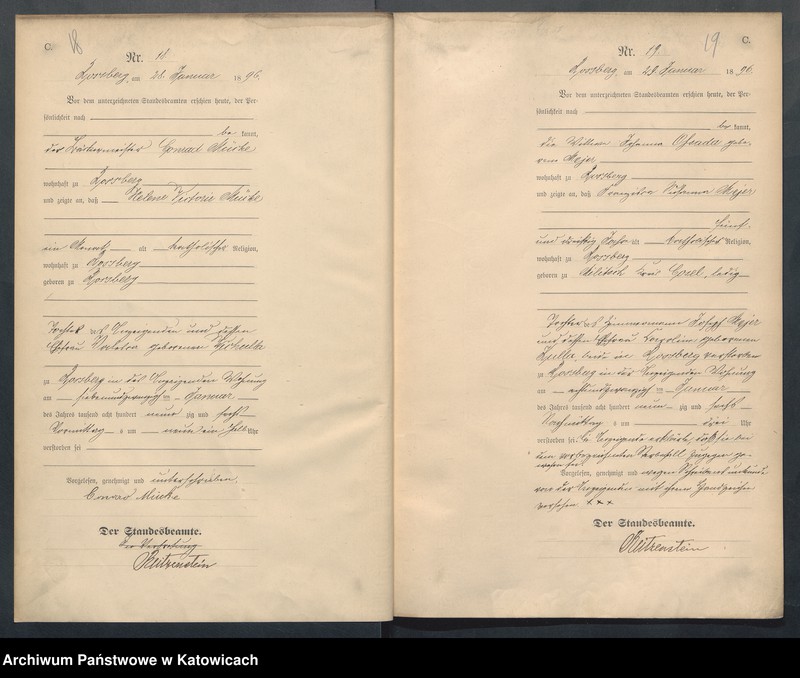 C.
18
Nr. 18
Zossberg am 28 Januar 1896.
Vor dem unterzeichneten Standesbeamten erschien heute, der Per-
sönlichkeit nach
be kannt,
der Bäckermeister Conrad Mücke
wohnhaft zu Zossberg
und zeigte an, daß Helene Victorie Mücke
ein Monat alt katholischer Religion,
wohnhaft zu Zossberg
geboren zu Zossberg
Tochter des Anzeigenden und dessen
Ehefrau geborenen
zu Zossberg in des Anzeigenden Wohnung
am siebenundzwanzigsten Januar
des Jahres tausend acht hundert neun zig und sechs
Vormittag s um neun ein halb Uhr
verstorben sei
Vorgelesen, genehmigt und unterschrieben.
Conrad Mücke
Der Standesbeamte.
In Vertretung
Klitzenstein
19
C.
Nr. 19.
Zossberg am 28 Januar 1896.
Vor dem unterzeichneten Standesbeamten erschien heute, der Per-
sönlichkeit nach
be kannt,
die Wittwe Johanna gebo-
rene Meyer
wohnhaft zu Zossberg
und zeigte an, daß Franziska Johanna Meyer
fünf
und dreißig Jahr alt katholischer Religion,
wohnhaft zu Zossberg
geboren zu Kreis Cosel, ledig
Tochter des Zimmermann Josef Meyer
und dessen Ehefrau Karoline geborenen
beide in Zossberg verstorben
zu Zossberg in der Anzeigenden Wohnung
am achtundzwanzigsten Januar
des Jahres tausend acht hundert neun zig und sechs
Nachmittag s um drei Uhr
verstorben sei. Die Anzeigende erklärte, daß sie bei
dem vorbezeichneten Sterbefall zugegen ge-
wesen sei.
Vorgelesen, genehmigt und wegen Schreibensunkunde
von der Anzeigenden mit ihrem Handzeichen
versehen xxx
Der Standesbeamte.
Klitzenstein
Archiwum Państwowe w Katowicach